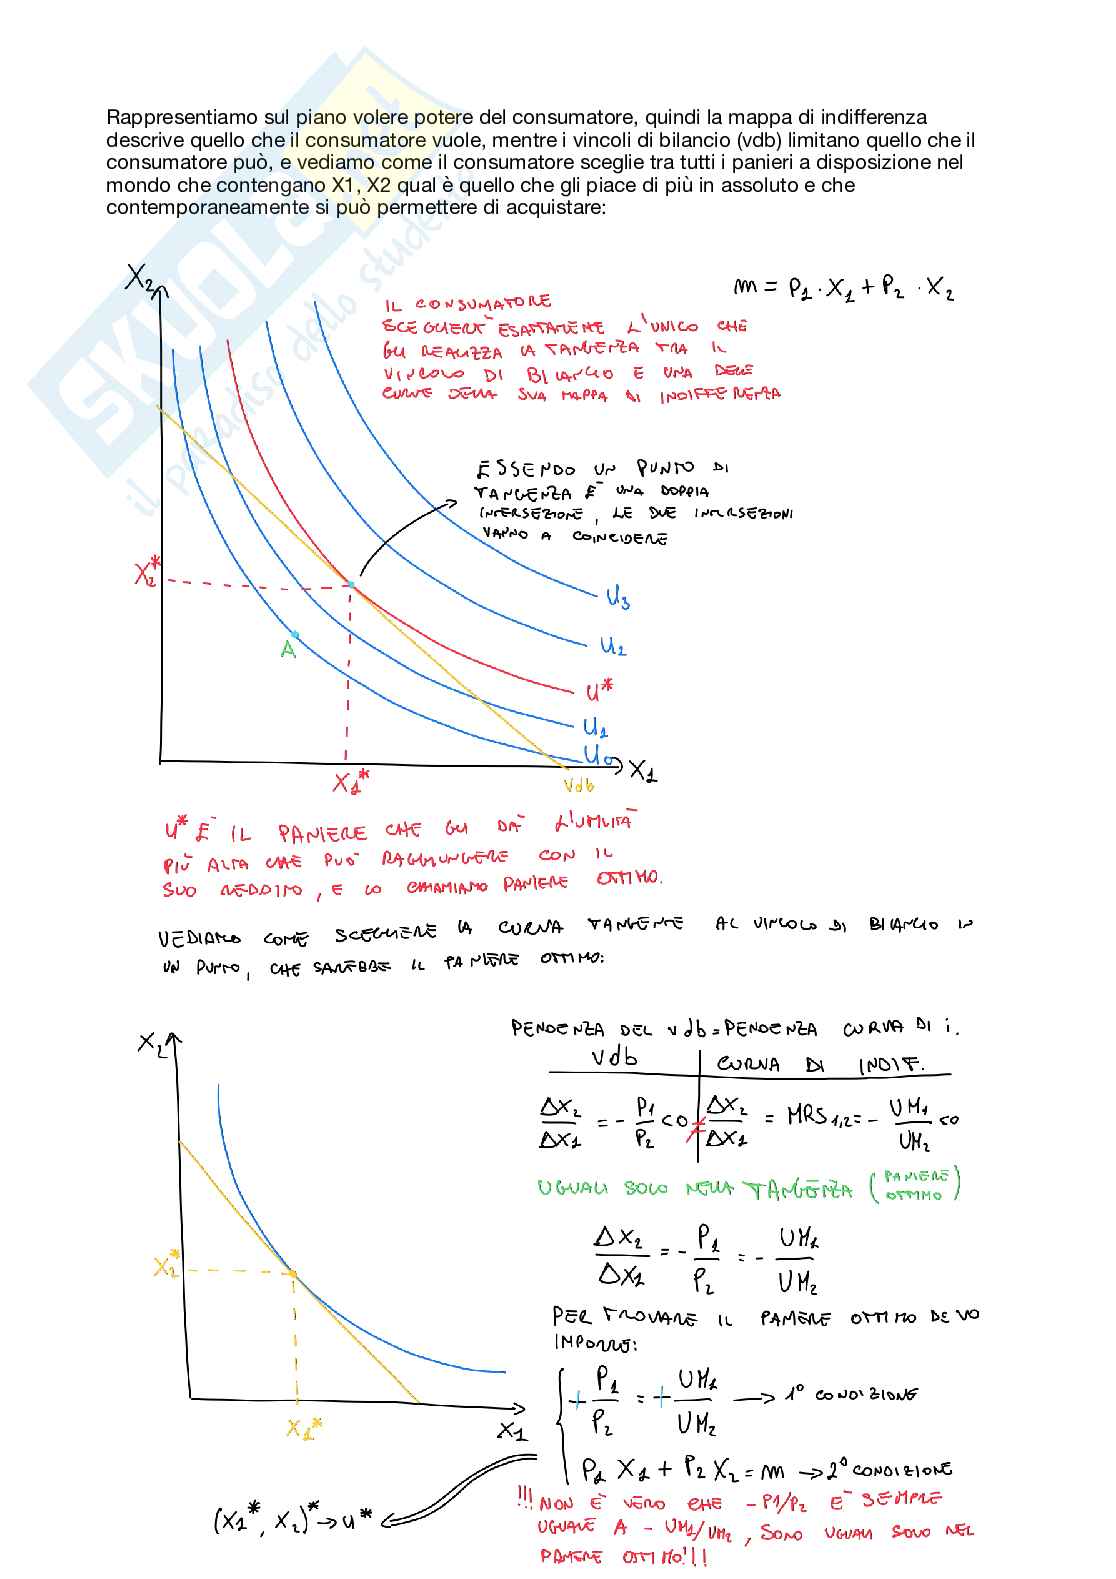 SKUOLA.net
il paradiso dello studente
Rappresentiamo sul piano volere potere del consumatore, quindi la mappa di indifferenza
descrive quello che il consumatore vuole, mentre i vincoli di bilancio (vdb) limitano quello che il
consumatore può, e vediamo come il consumatore sceglie tra tutti i panieri a disposizione nel
mondo che contengano X1, X2 qual è quello che gli piace di più in assoluto e che
contemporaneamente si può permettere di acquistare:
X2
m = P1 · X1 + P2 · X2
IL CONSUMATORE
SCEGLIERÀ ESATTAMENTE L'UNICO CHE
GLI REALIZZA LA TANGENZA TRA IL
VINCOLO DI BILANCIO E UNA DELLE
CURVE DELLA SUA MAPPA DI INDIFFERENZA
ESSENDO UN PUNTO DI
TANGENZA È UNA DOPPIA
INTERSEZIONE, LE DUE INTERSEZIONI
VANNO A COINCIDERE
X2*
A
U3
U2
U*
U1
U0
X1
X1*
Vdb
U* È IL PANIERE CHE GLI DÀ L'UTILITÀ
PIÙ ALTA CHE PUÒ RAGGIUNGERE CON IL
SUO REDDITO, E LO CHIAMIAMO PANIERE OTTIMO.
VEDIAMO COME SCEGLIERE LA CURVA TANGENTE AL VINCOLO DI BILANCIO IN
UN PUNTO, CHE SAREBBE IL PANIERE OTTIMO:
PENDENZA DEL vdb = PENDENZA CURVA DI i.
Vdb | CURVA DI INDIF.
ΔX2/ΔX1 = - P1/P2 < 0 ≠ ΔX2/ΔX1 = MRS1,2 = - UM1/UM2 < 0
UGUALI SOLO NELLA TANGENZA (PANIERE OTTIMO)
ΔX2/ΔX1 = - P1/P2 = - UM1/UM2
PER TROVARE IL PANIERE OTTIMO DEVO
IMPORRE:
+ P1/P2 = + UM1/UM2 → 1° CONDIZIONE
P1 X1 + P2 X2 = m → 2° CONDIZIONE
X2
X2*
X1*
X1
(X1*, X2)* → U*
!!! NON È VERO CHE - P1/P2 È SEMPRE
UGUALE A - UM1/UM2, SONO UGUALI SOLO NEL
PANIERE OTTIMO!!!